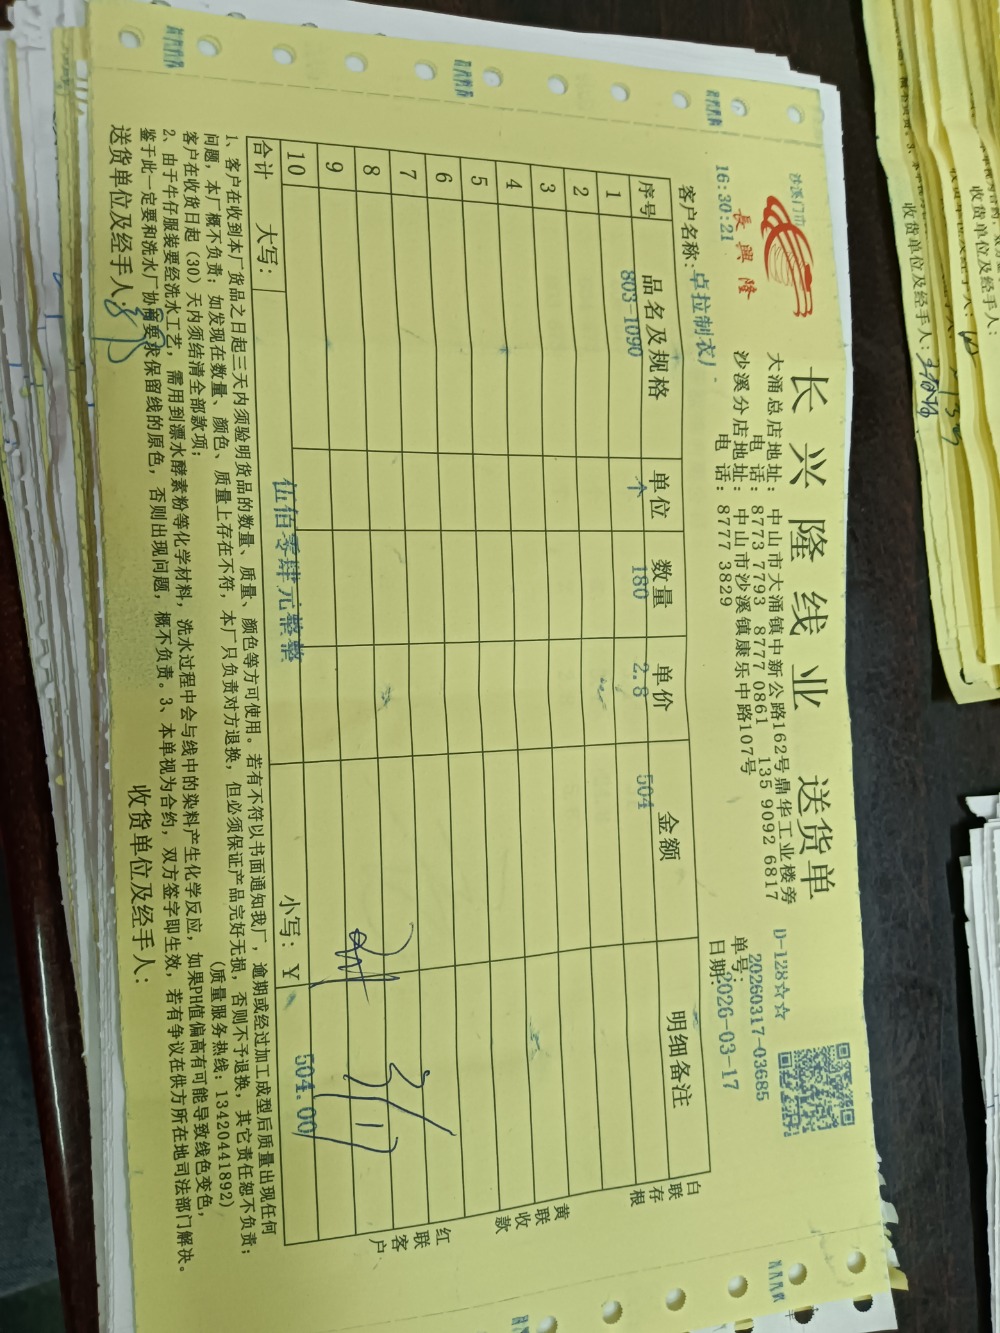 长兴隆线业 送货单
沙溪门市
長興隆
16:30:21
大涌总店地址：中山市大涌镇中新公路162号鼎华工业楼旁
电话：8773 7793 8777 0861 135 9092 6817
沙溪分店地址：中山市沙溪镇康乐中路107号
电话：8777 3829
D-128☆☆
单号：20260317-03685
日期：2026-03-17
客户名称：卓拉制衣厂
序号 品名及规格 单位 数量 单价 金额 明细备注
1 803-1090 个 180 2.8 504
2
3
4
5
6
7
8
9
10
合计 大写： 伍佰零肆元整整 小写：￥ 504.00
白联存根
黄联收款
红联客户
1、客户在收到本厂货品之日起三天内须验明货品的数量、质量、颜色等方可使用。若有不符以书面通知我厂，逾期或经过加工成型后质量出现任何
问题，本厂概不负责；如发现在数量、颜色、质量上存在不符，本厂只负责对方退换，但必须保证产品完好无损，否则不予退换，其它责任恕不负责；
客户在收货日起（30）天内须结清全部款项； （质量服务热线：13420441892）
2、由于牛仔服装要经洗水工艺，需用到漂水酵素粉等化学材料，洗水过程中会与线中的染料产生化学反应，如果PH值偏高有可能导致线色变色，
鉴于此一定要和洗水厂协商要求保留线的原色，否则出现问题，概不负责。3、本单视为合约，双方签字即生效，若有争议在供方所在地司法部门解决。
送货单位及经手人：
收货单位及经手人：
收货单位及经手人：
收货单位及经手人：